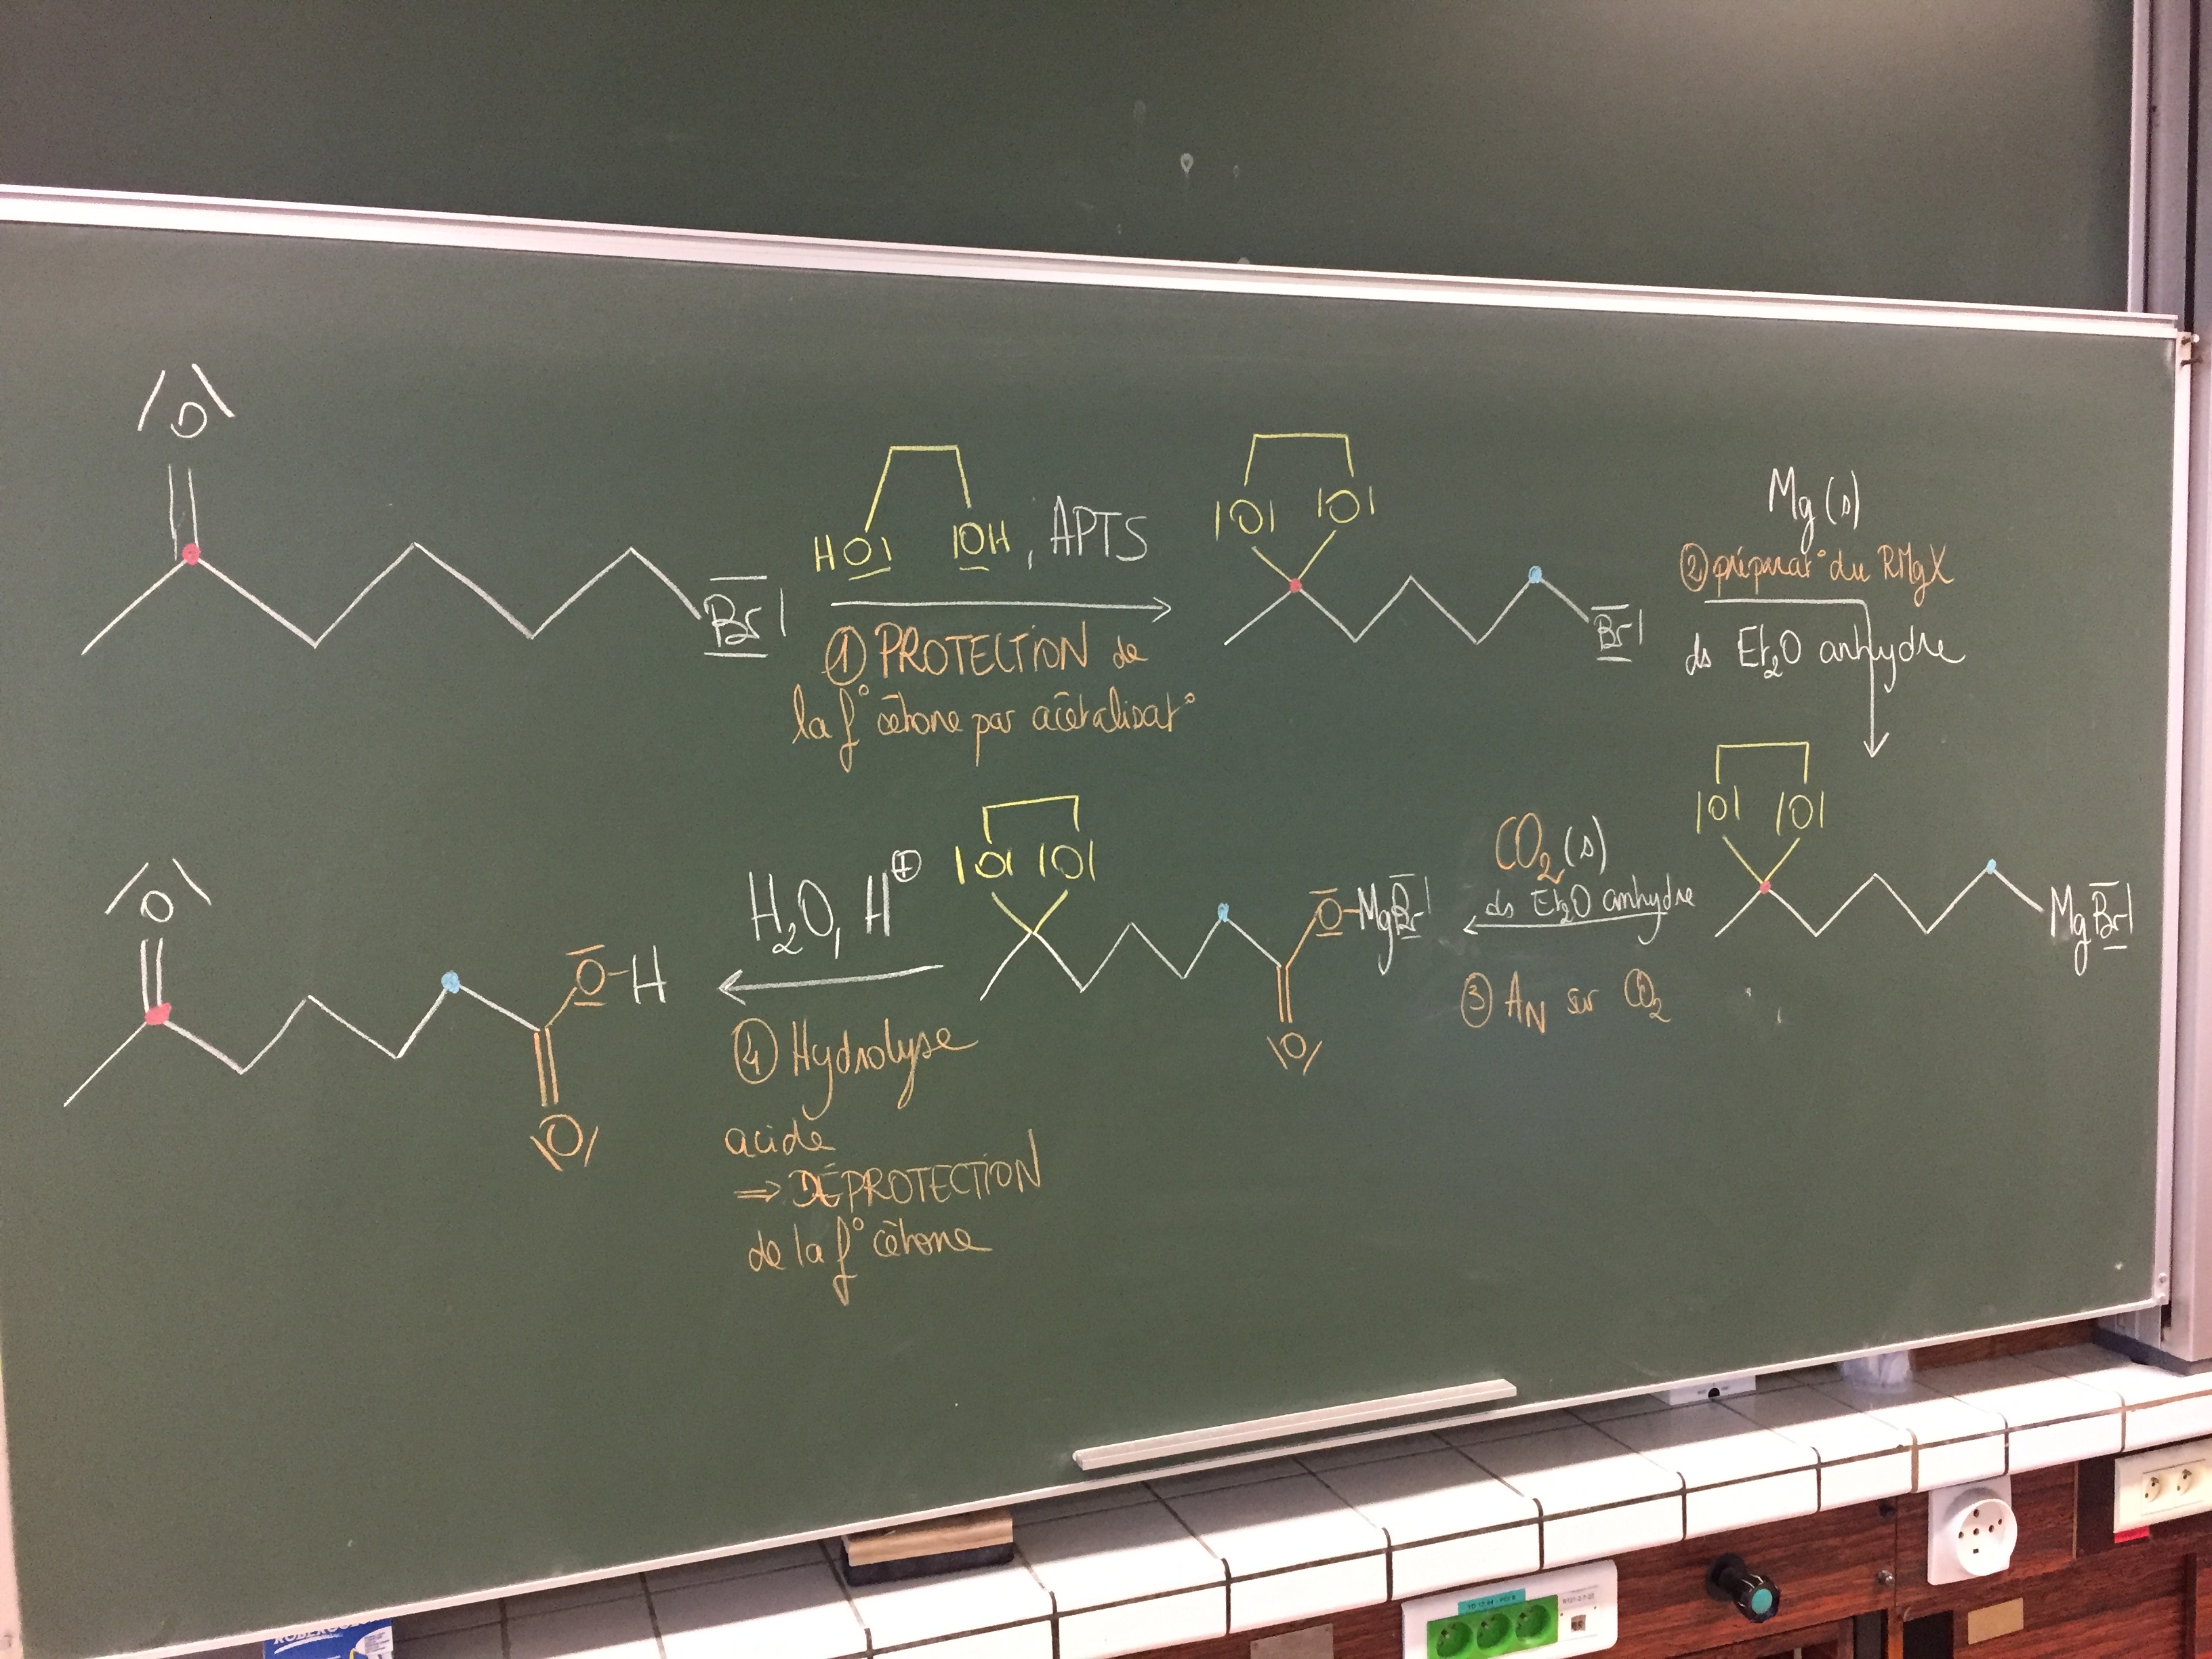 |O|
Br|
HO| |OH, APTS
① PROTECTION de
la f° cétone par acétalisat°
|O| |O|
Br|
Mg (s)
② préparat° du RMgX
ds Et₂O anhydre
|O| |O|
MgBr|
CO₂ (s)
ds Et₂O anhydre
③ AN sur CO₂
|O| |O|
O-MgBr|
|O|
H₂O, H⊕
④ Hydrolyse
acide
⇒ DÉPROTECTION
de la f° cétone
|O|
O-H
|O|